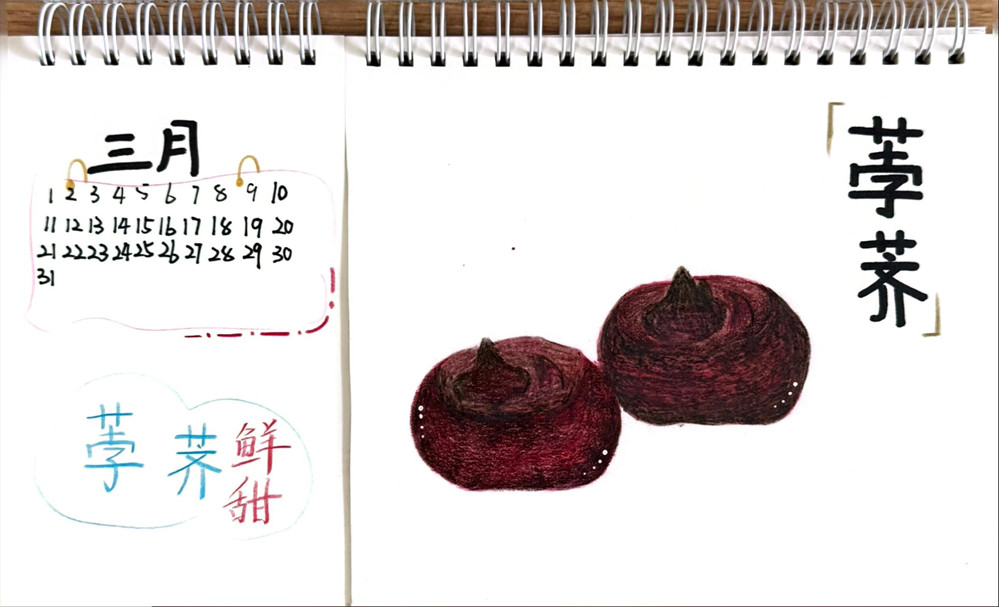 三月
1 2 3 4 5 6 7 8 9 10
11 12 13 14 15 16 17 18 19 20
21 22 23 24 25 26 27 28 29 30
31
荸荠鲜
甜
「荸荠」